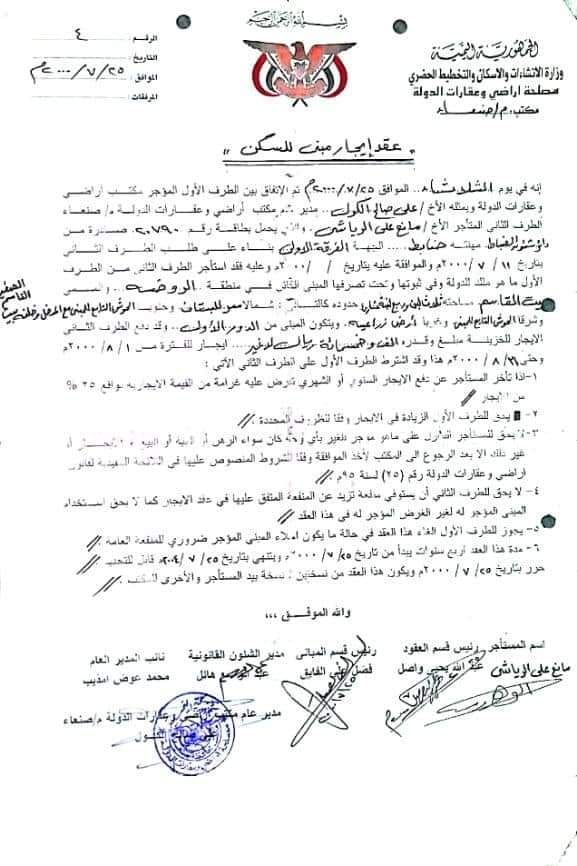 بسم الله الرحمن الرحيم
الجمهورية اليمنية
وزارة الإنشاءات والإسكان والتخطيط الحضري
مصلحة أراضي وعقارات الدولة
مكتب م/صنعاء
الرقم : ٤
التاريخ :
الموافق : ٢٥ / ٧ / ٢٠٠٠م
المرفقات :
عقد إيجار مبنى للسكن
إنه في يوم الثلاثاء الموافق ٢٥/ ٧ /٢٠٠٠م تم الإتفاق بين الطرف الأول المؤجر مكتب أراضي
وعقارات الدولة ويمثله الأخ / علي صالح الكول مدير عام مكتب أراضي وعقارات الدولة م/ صنعاء
الطرف الثاني المتأجر الأخ / مانع علي الرياشي والذي يحمل بطاقة رقم ٢٠٧٩٠ صادرة من
الضباط مهنته ضابط الجهة الفرقة الأولى بناء على طلب الطرف الثاني
بتاريخ ١١ / ٧ / ٢٠٠٠م والموافقة عليه بتاريخ / / ٢٠٠٠م وعليه فقد استأجر الطرف الثاني من الطرف
الأول ما هو ملك للدولة وفي ثبوتها وتحت تصرفها المبنى الكائن في منطقة الروضة والمسمى
بيت القاسم مساحته حدوده كالتالي شمالا ممر للبستان وجنوب
وشرقا الحوش التابع للمبنى وغربا أرض زراعية ويتكون المبنى من الدور الأول وقد دفع الطرف الثاني
الايجار للخزينة مبلغ وقدره ألف وخمسمائة ريال لاغير ايجار للفترة من ١ / ٨ /٢٠٠٠م
وحتى ٣١ / ٨ /٢٠٠٠م هذا وقد اشترط الطرف الأول على الطرف الثاني الآتي :
١-اذا تأخر المستأجر عن دفع الايجار السنوي أو الشهري تفرض عليه غرامة من القيمة الايجارية بواقع ٢٥ %
من الايجار
٢- يحق للطرف الأول الزيادة في الايجار وفقا للظروف المحددة
٣-لا يحق للمستأجر التنازل على ماهو مؤجر للغير بأي وجه كان سواء الرهن أو الهبة أو البيع أو أو
غير ذلك الا بعد الرجوع الى المكتب لأخذ الموافقة وفقا للشروط المنصوص عليها في اللائحة التنفيذية لقانون
اراضي وعقارات الدولة رقم (٢٥) لسنة ٩٥م
٤- لا يحق للطرف الثاني أن يستوفي منفعة تزيد عن المنفعة المتفق عليها في عقد الايجار كما لا يحق استخدام
المبنى المؤجر له لغير الغرض المؤجر له في هذا العقد
٥- يجوز للطرف الأول الغاء هذا العقد في حالة ما يكون اخلاء المبنى المؤجر ضروري للمنفعة العامة
٦- مدة هذا العقد اربع سنوات يبدأ من تاريخ ٢٥/ ٧ / ٢٠٠٠م وينتهي بتاريخ ٢٥/ ٧ /٢٠٠٤م قابل للتجديد
حرر بتاريخ ٢٥/ ٧ /٢٠٠٠م ويكون هذا العقد من نسختين نسخة بيد المستأجر والأخرى للمكتب
والله الموفق ،،،
اسم المستأجر رئيس قسم العقود رئيس قسم المباني مدير الشئون القانونية نائب المدير العام
مانع علي الرياشي عبد الله يحيى واصل فضل علي الفايق هائل محمد عوض
مدير عام مكتب أراضي وعقارات الدولة م/صنعاء
علي صالح الكول